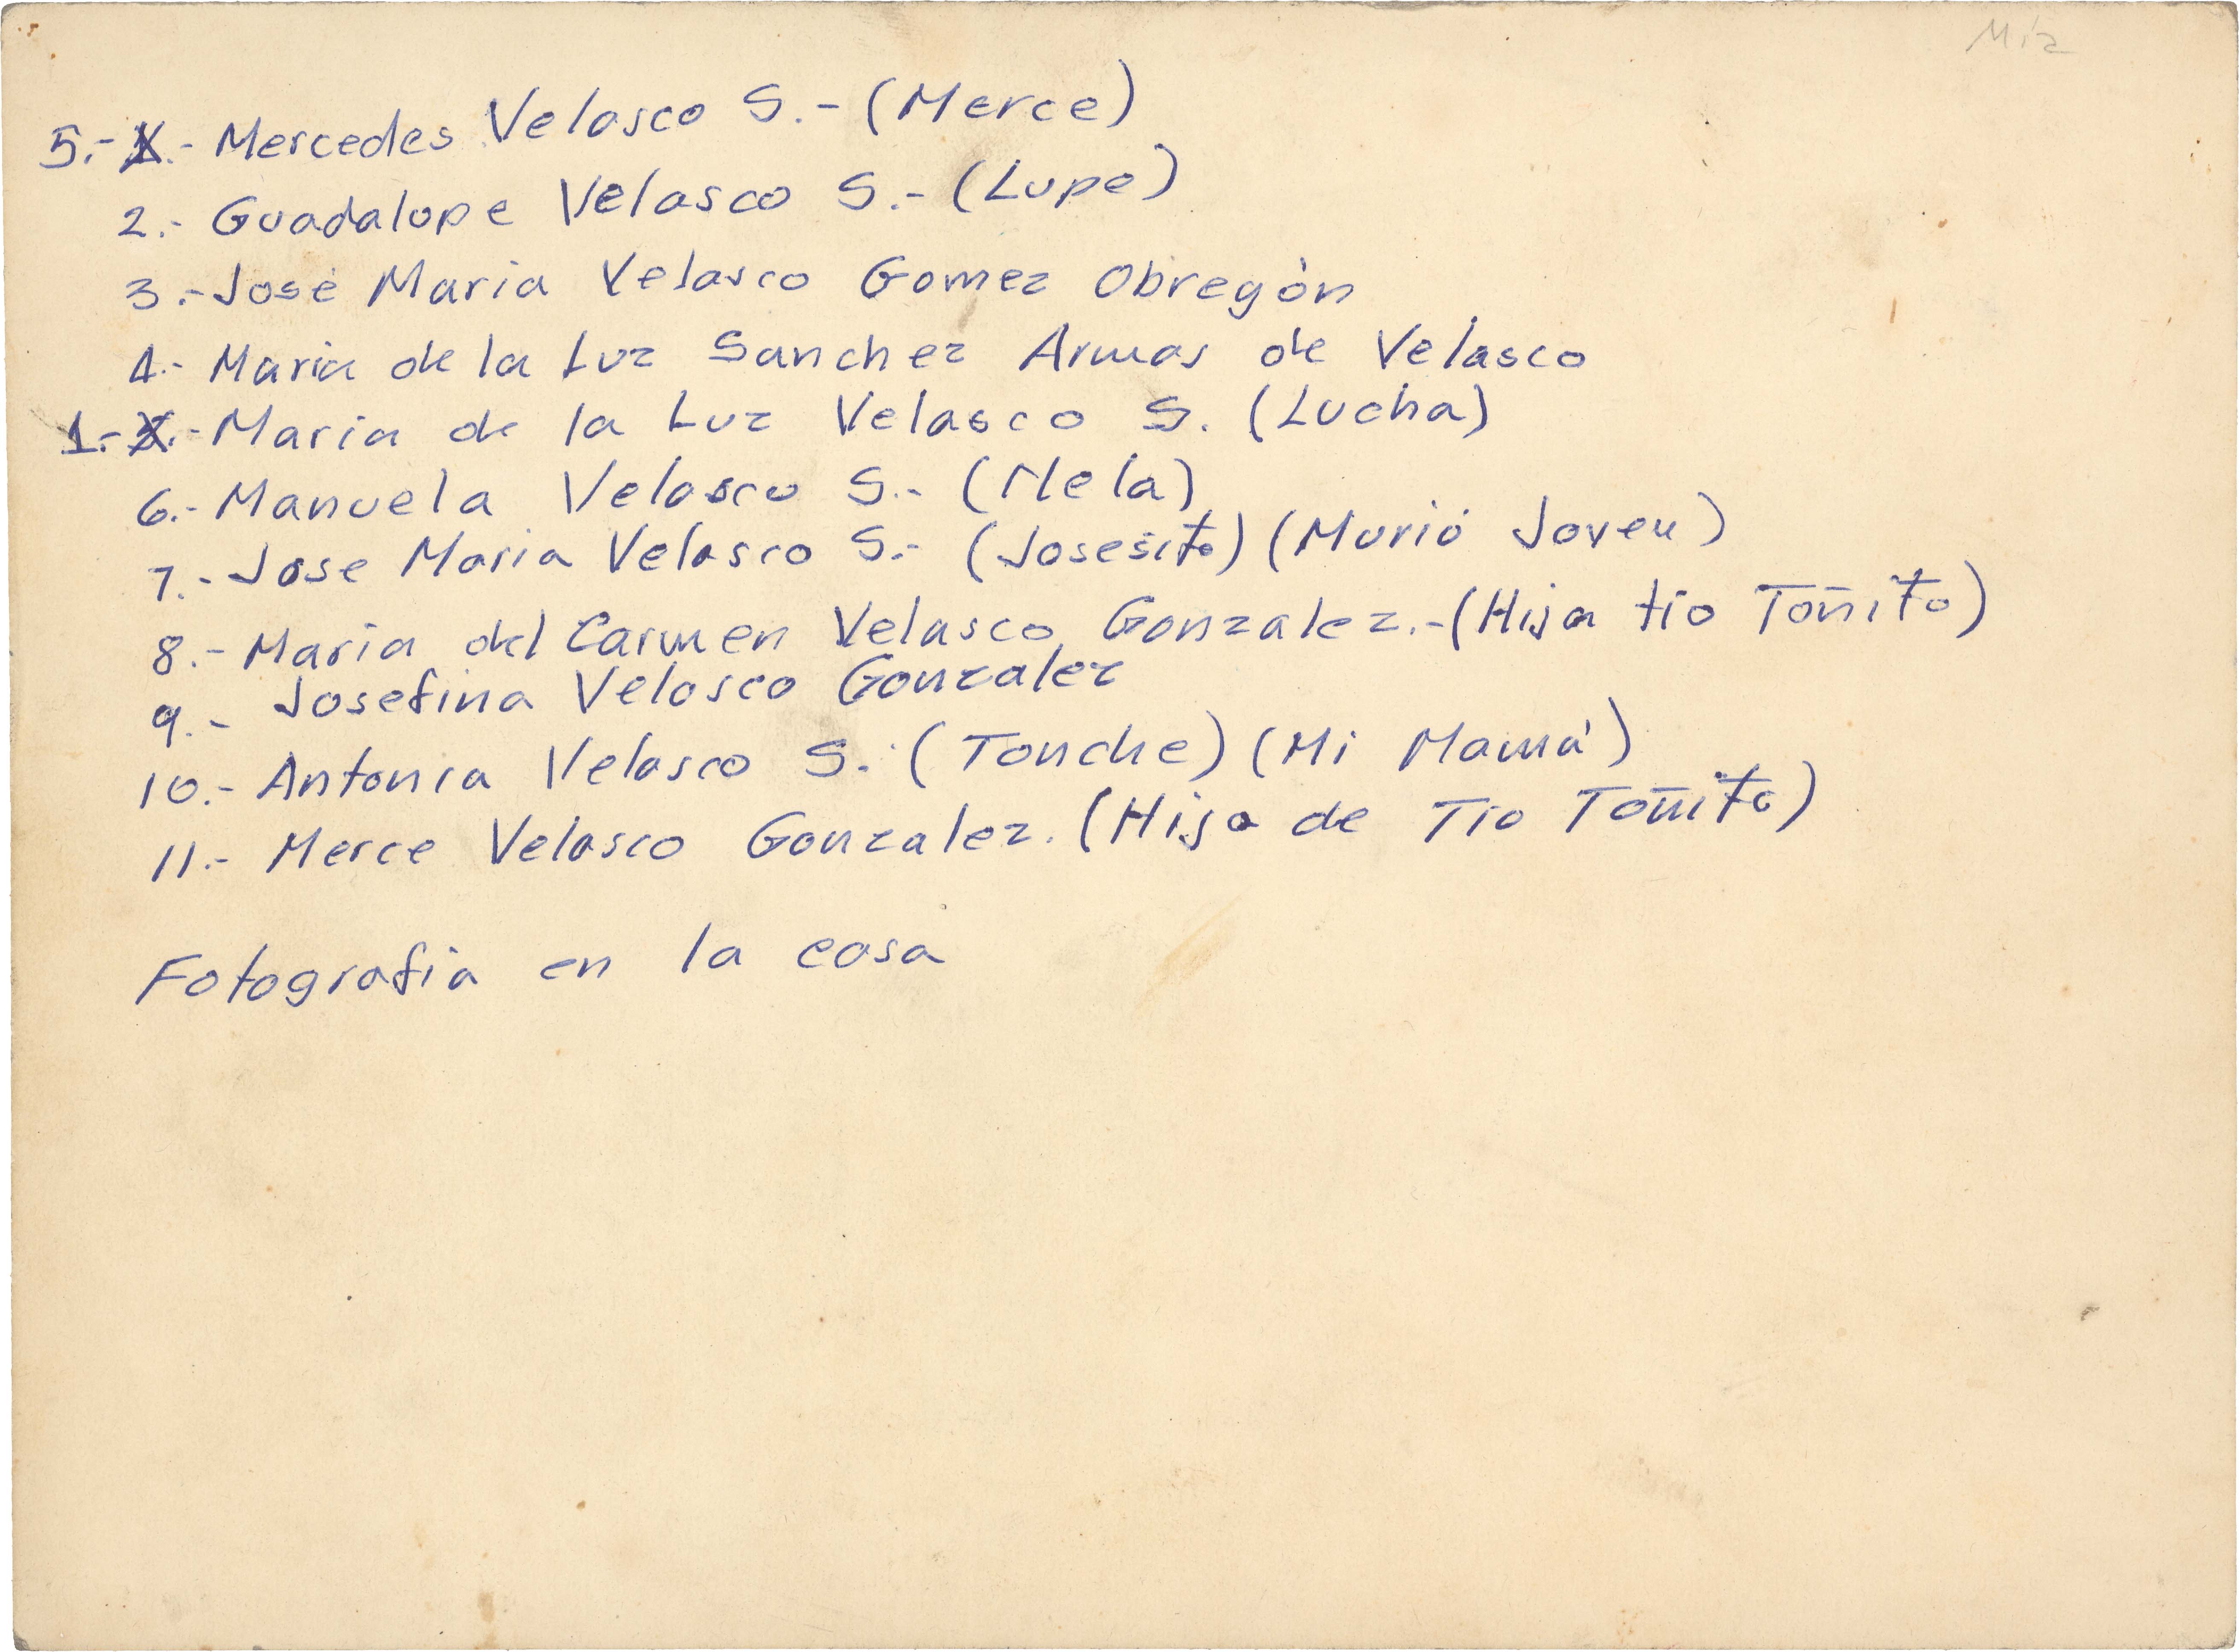 Mia
5.- 1.- Mercedes Velasco S.- (Merce)
2.- Guadalupe Velasco S.- (Lupe)
3.- José Maria Velasco Gomez Obregón
4.- Maria de la Luz Sanchez Armas de Velasco
1.- .- Maria de la Luz Velasco S. (Lucha)
6.- Manuela Velasco S.- (Nela)
7.- Jose Maria Velasco S.- (Josesito) (Murió Joven)
8.- Maria del Carmen Velasco Gonzalez.- (Hija tío Toñito)
9.- Josefina Velasco Gonzalez
10.- Antonia Velasco S. (Tonche) (Mi Mamá)
11.- Merce Velasco Gonzalez. (Hija de Tío Toñito)
Fotografia en la casa